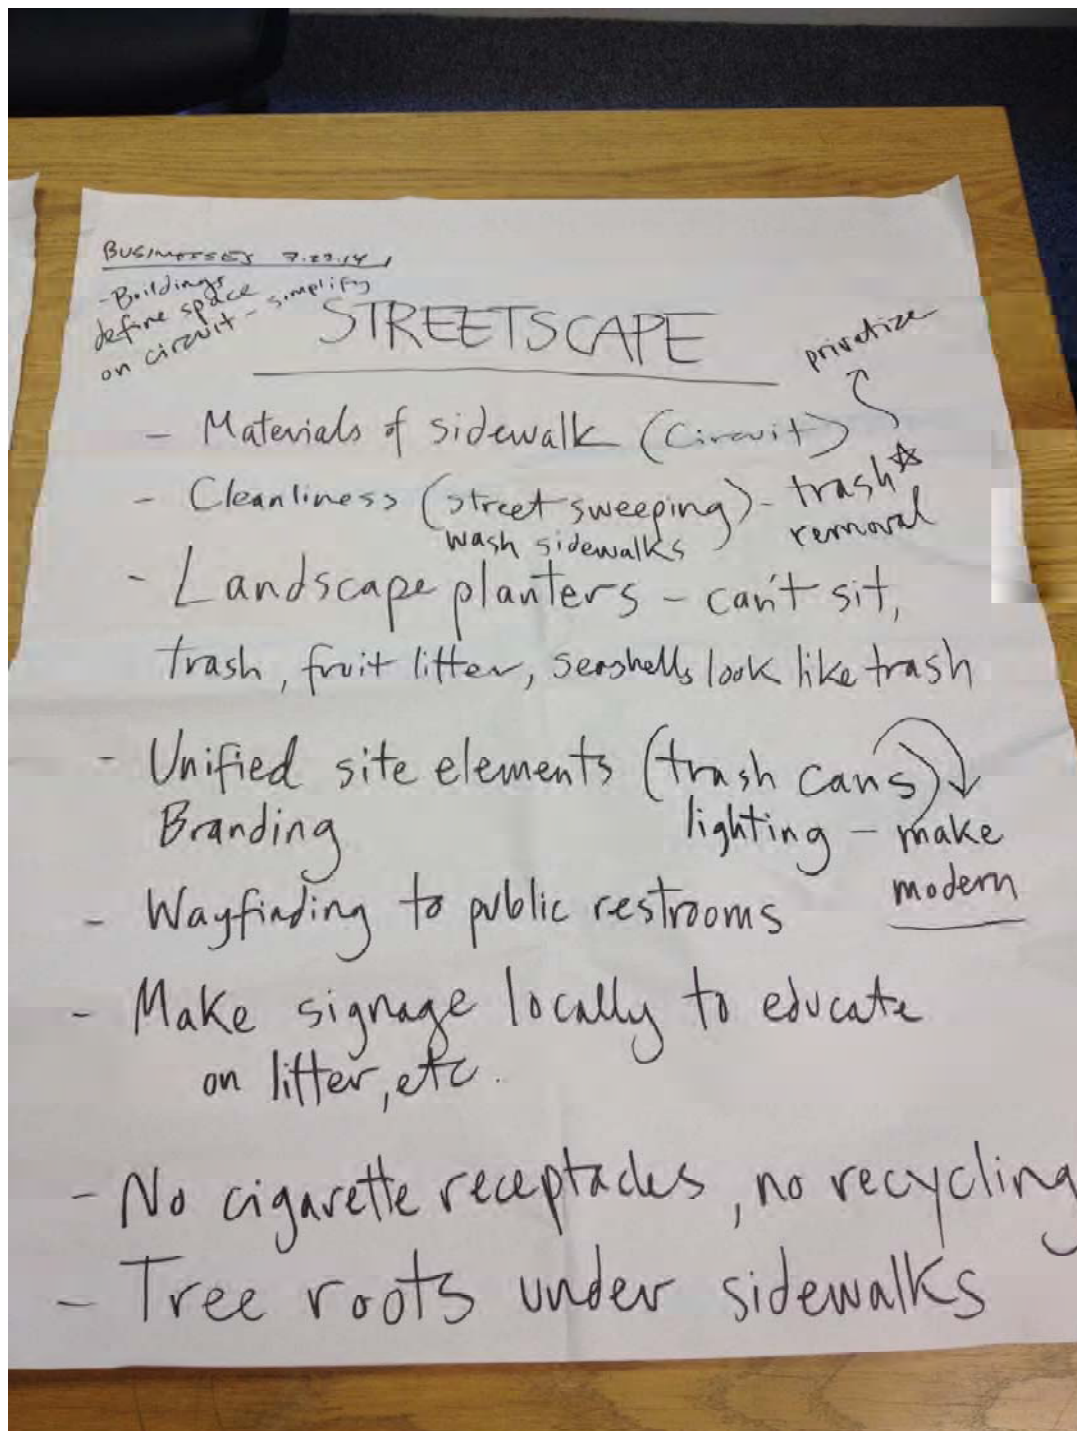 BUSINESSES 7.29.14
- Buildings
define space
on circuit - simplify
STREETSCAPE
privatize
- Materials of sidewalk (Circuit)
- Cleanliness (street sweeping) - trash☆
wash sidewalks removal
- Landscape planters - can't sit,
trash, fruit litter, seashells look like trash
- Unified site elements (trash cans)
Branding lighting - make
modern
- Wayfinding to public restrooms
- Make signage locally to educate
on litter, etc.
- No cigarette receptacles, no recycling
- Tree roots under sidewalks